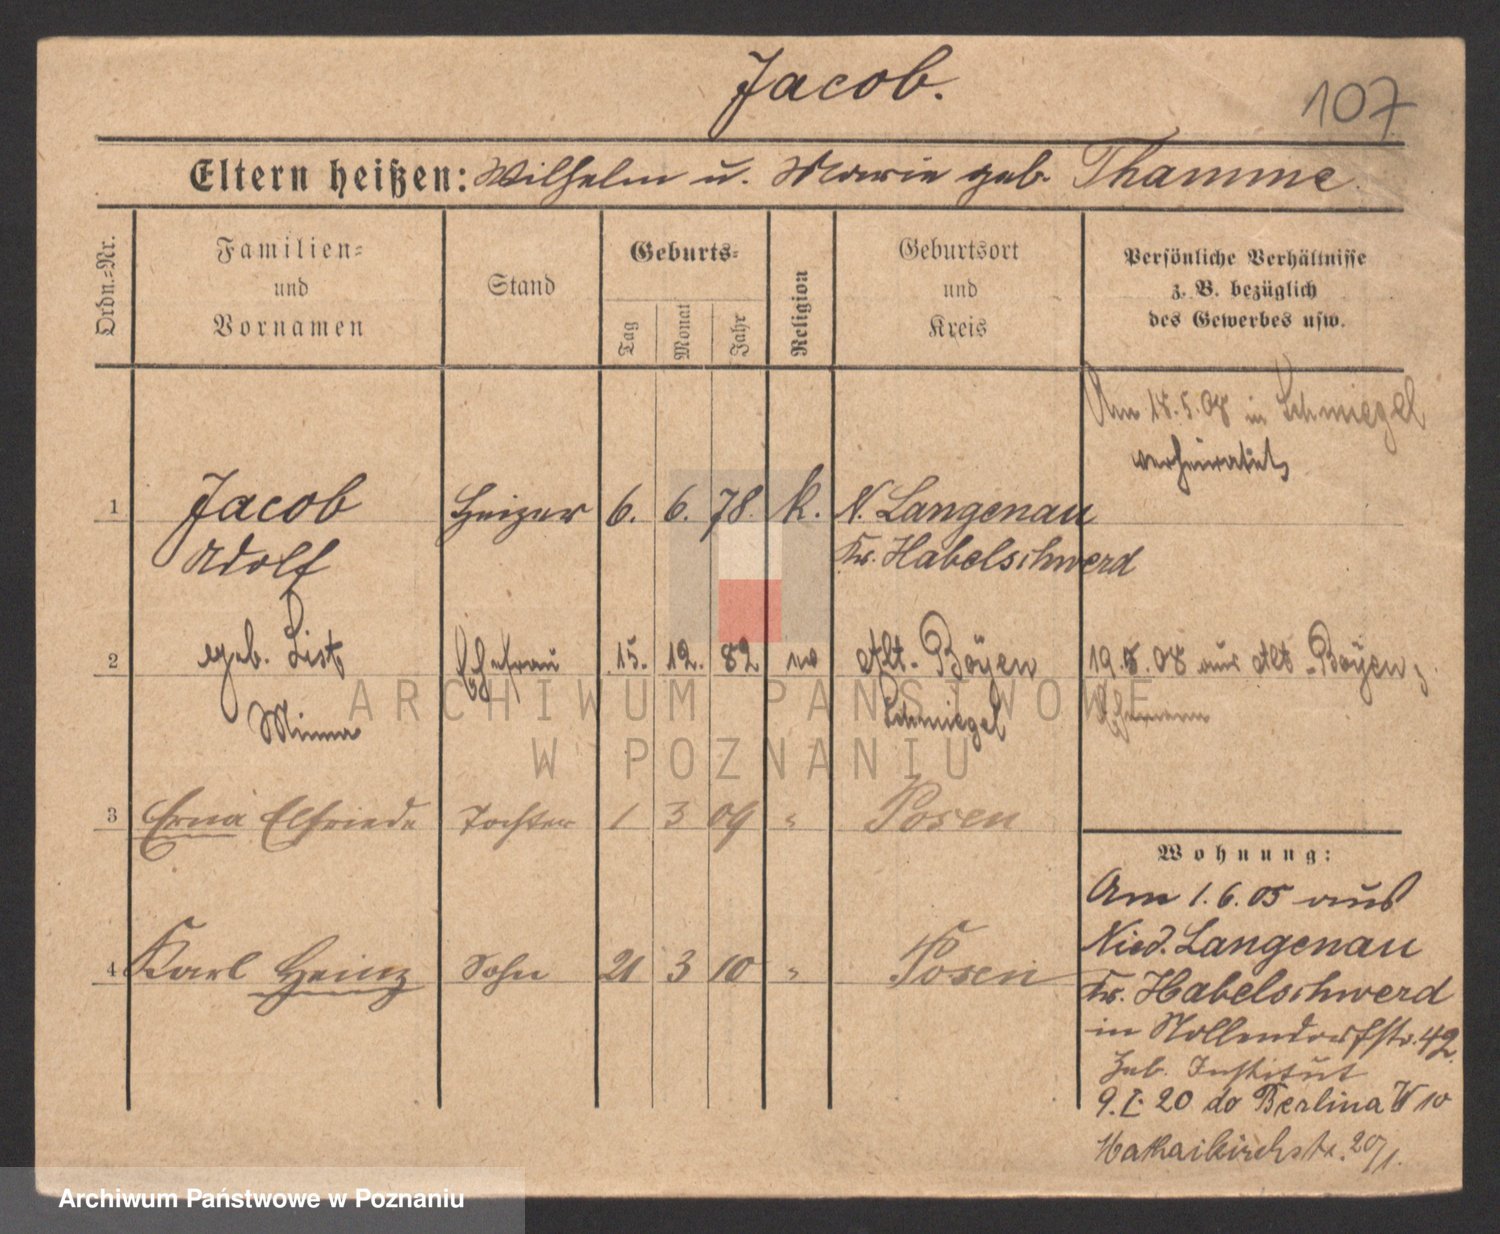 Jacob.
107
Eltern heißen: Wilhelm u. Marie geb. Thamme
Ordn.-Nr.
Familien-
und
Vornamen
Stand
Geburts-
Tag
Monat
Jahr
Religion
Geburtsort
und
Kreis
Persönliche Verhältnisse
z. B. bezüglich
des Gewerbes usw.
Am 18.5.08 in Schmiegel
verheiratet
1 Jacob Heizer 6. 6. 78. k. N. Langenau
Adolf Kr. Habelschwerd
2 geb. List Ehefrau 15. 12. 82 Alt-Boyen 19.5.08 aus Alt-Boyen
Minna Schmiegel Ehemann
3 Erna Elfriede Tochter 1 3 09 " Posen
4 Karl Heinz Sohn 21 3 10 " Posen
Wohnung:
Am 1.6.05 aus
Nied. Langenau
Kr. Habelschwerd
in Nollendorfstr. 42.
Institut
9.I.20 do Berlina W 10
20/1.
ARCHIWUM PAŃSTWOWE
W POZNANIU
Archiwum Państwowe w Poznaniu